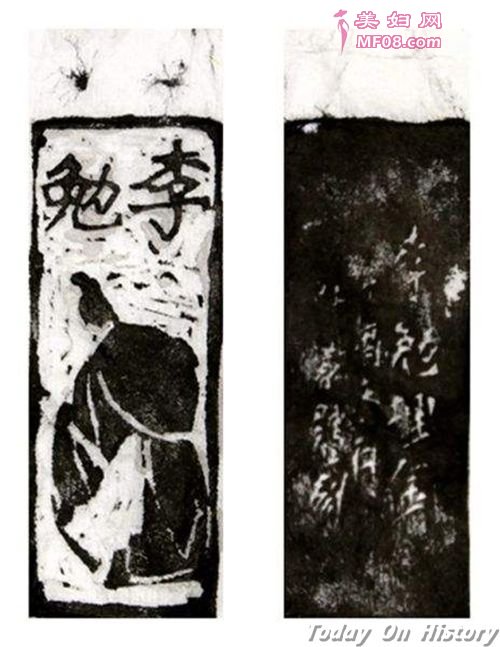 美妇网
MF08.com
李勉
李勉埋金
Today On History